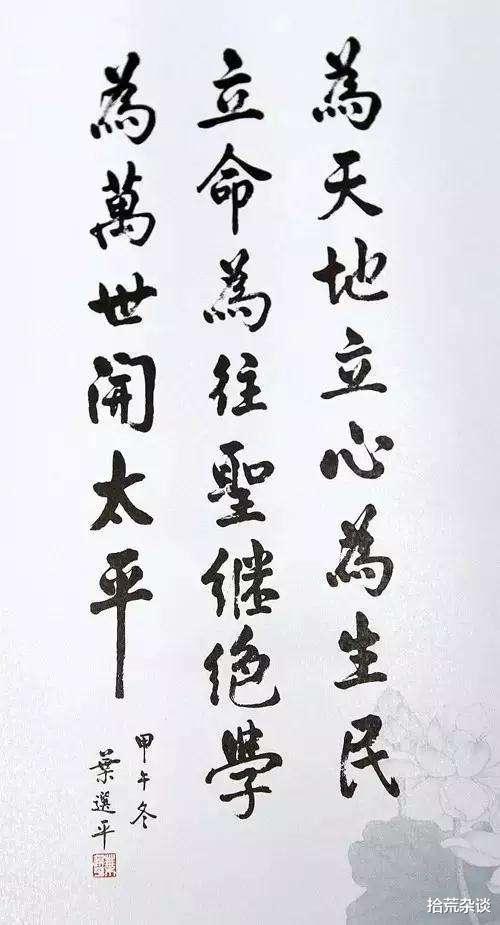 為天地立心為生民
立命為往聖继绝學
為萬世開太平
甲午冬
葉選平
拾荒杂谈